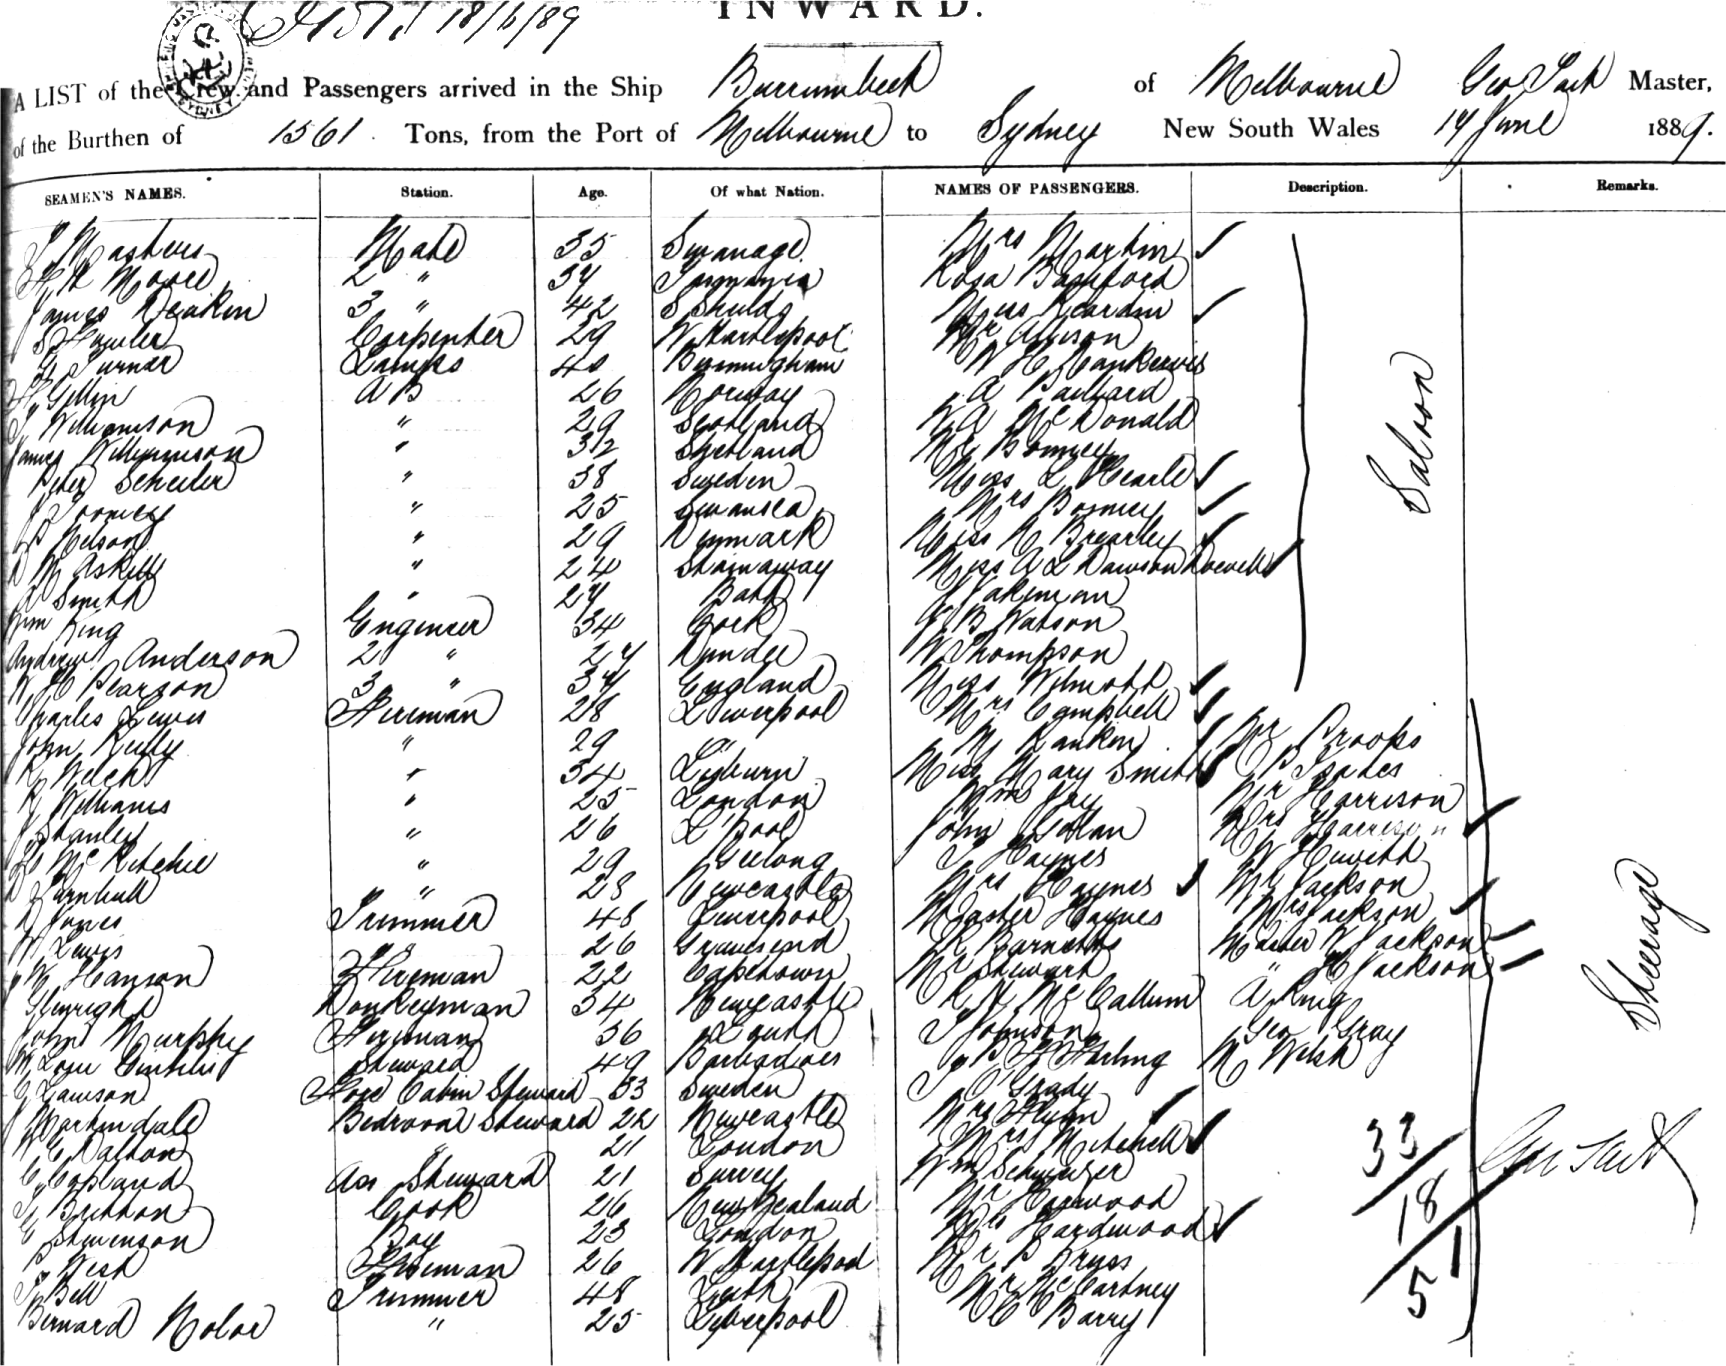 18/6/89
INWARD.
A LIST of the Crew and Passengers arrived in the Ship Burrumbeet of Melbourne Geo Tait Master,
of the Burthen of 1561 Tons, from the Port of Melbourne to Sydney New South Wales 14 June 1889.
SEAMEN'S NAMES. Station. Age. Of what Nation. NAMES OF PASSENGERS. Description. Remarks.
Mate 35 Swanage Mrs Martin
Moore 2 " 34 Tasmania Rosa Bamford
James Deakin 3 " 42 S Shields Miss Reardin
Carpenter 29 W Hartlepool Mr Allison
Turner Lamps 40 Birmingham W H Mankervis
A B 26 Norway A
J Williamson " 29 Scotland McDonald
James Williamson " 32 Shetland Mr Bonney Saloon
Peter " 38 Sweden Miss L Hearle
J Toomey " 25 Swansea Mrs Bonney
Nelson " 29 Denmark Miss N Brearley
" 24 Stornaway Miss A L Dawson
A Smith " 24 Bath J Jakeman
Wm King Engineer 34 Cork B Watson
Andrew Anderson 2 " 24 Dundee W Thompson
W H Pearson 3 " 34 England Miss Wilmott
Charles Lewis Fireman 28 Liverpool Mrs Campbell
John Reilly " 29 " Rankin Mr Brooks
R Welch " 34 Miss Mary Smith
R Williams " 25 London Wm Jay Mr Harrison
J Stanley " 26 L'Pool John Mrs Harrison
McRitchie " 29 Geelong J Haynes W Hewitt
Turnbull " 28 Newcastle Mrs Haynes Mr Jackson
Jones Trimmer 48 Liverpool Master Haynes Mrs Jackson
W Lewis 26 Gravesend R Barnetts Master W Jackson
Hanson Fireman 22 Capetown Mr Stewart " H Jackson
Glenright Donkeyman 34 Newcastle R N McCallum A King Steerage
John Murphy Fireman 36 Louth J Johnson Geo Gray
Steward 49 Barbadoes Harling M Welsh
C Lawson Fore Cabin Steward 33 Sweden O'Grady
J Martindale Bedroom Steward 22 Newcastle Mrs Flynn
W E Dalton " 21 London Mrs Mitchell 33
C Copland Ass Steward 21 Surrey Wm Schweizer Geo Tait
Britton Cook 26 New Zealand Mr Harwood 18
C Stevenson Boy 23 London Mrs Hardwood
West Fireman 26 W Hartlepool Mr B Bryss 51
Bell Trimmer 48 Leith Mr McCartney
Bernard Nolan " 25 Liverpool C Barry